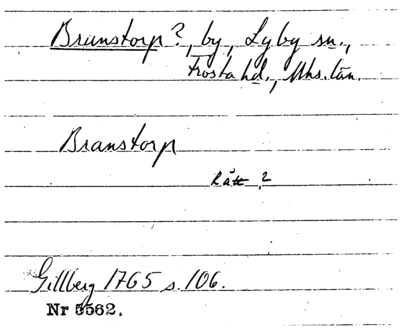 Brunstorp?, by, Lyby sn.,
Frosta hd., Mhs. län.
Branstorp
Rätt ?
Gillberg 1765 s. 106.
Nr 5562.